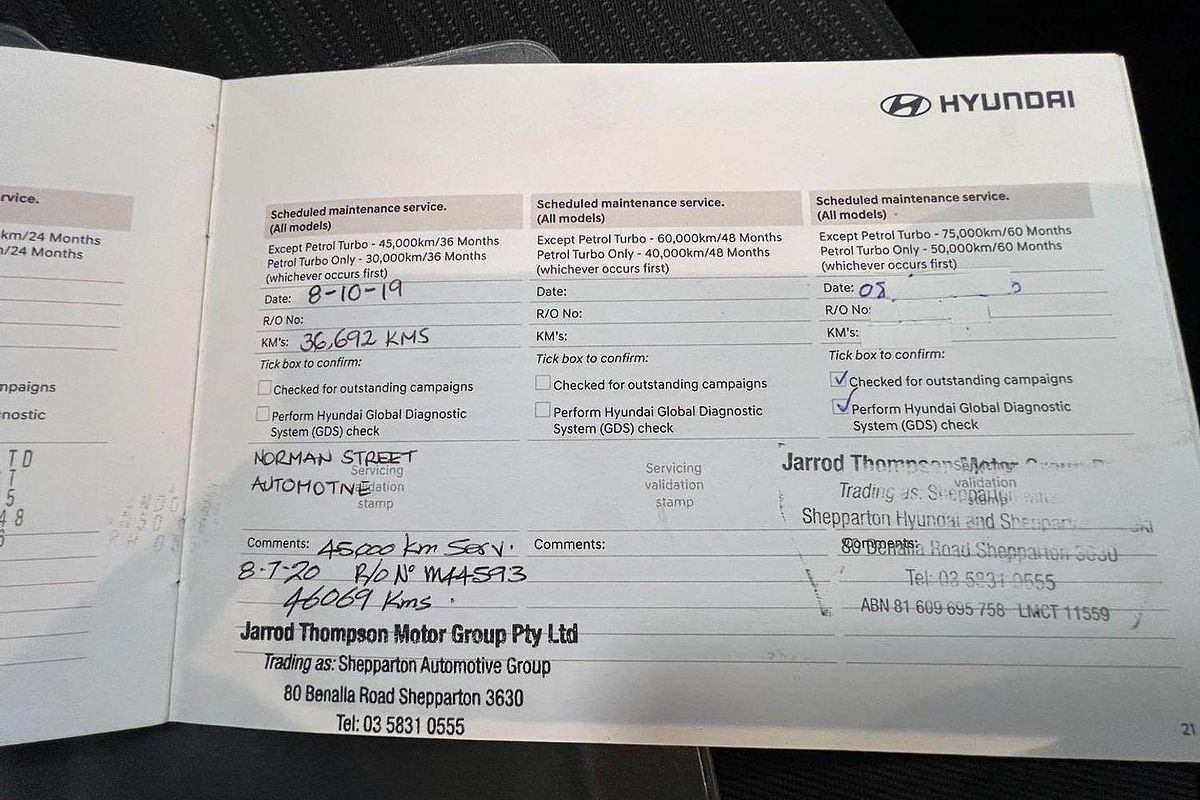 HYUNDAI
rvice.
km/24 Months
/24 Months
mpaigns
nostic
TD
T
5
48
Scheduled maintenance service.
(All models)
Except Petrol Turbo - 45,000km/36 Months
Petrol Turbo Only - 30,000km/36 Months
(whichever occurs first)
Date: 8-10-19
R/O No:
KM's: 36,692 KMS
Tick box to confirm:
Checked for outstanding campaigns
Perform Hyundai Global Diagnostic
System (GDS) check
NORMAN STREET
Servicing
AUTOMOTIVE
validation
stamp
Comments: 45000 km Serv.
8-7-20 R/O Nº M44593
46069 Kms.
Jarrod Thompson Motor Group Pty Ltd
Trading as: Shepparton Automotive Group
80 Benalla Road Shepparton 3630
Tel: 03 5831 0555
Scheduled maintenance service.
(All models)
Except Petrol Turbo - 60,000km/48 Months
Petrol Turbo Only - 40,000km/48 Months
(whichever occurs first)
Date:
R/O No:
KM's:
Tick box to confirm:
Checked for outstanding campaigns
Perform Hyundai Global Diagnostic
System (GDS) check
Servicing
validation
stamp
Comments:
Scheduled maintenance service.
(All models)
Except Petrol Turbo - 75,000km/60 Months
Petrol Turbo Only - 50,000km/60 Months
(whichever occurs first)
Date: 08
R/O No:
KM's:
Tick box to confirm:
Checked for outstanding campaigns
Perform Hyundai Global Diagnostic
System (GDS) check
Jarrod Thompson Motor
Servicing
Trading as:
validation
stamp
Shepparton Hyundai and
Comments:
80 Benalla Road Shepparton 3630
Tel: 03 5831 0555
ABN 81 609 695 758 LMCT 11559
21